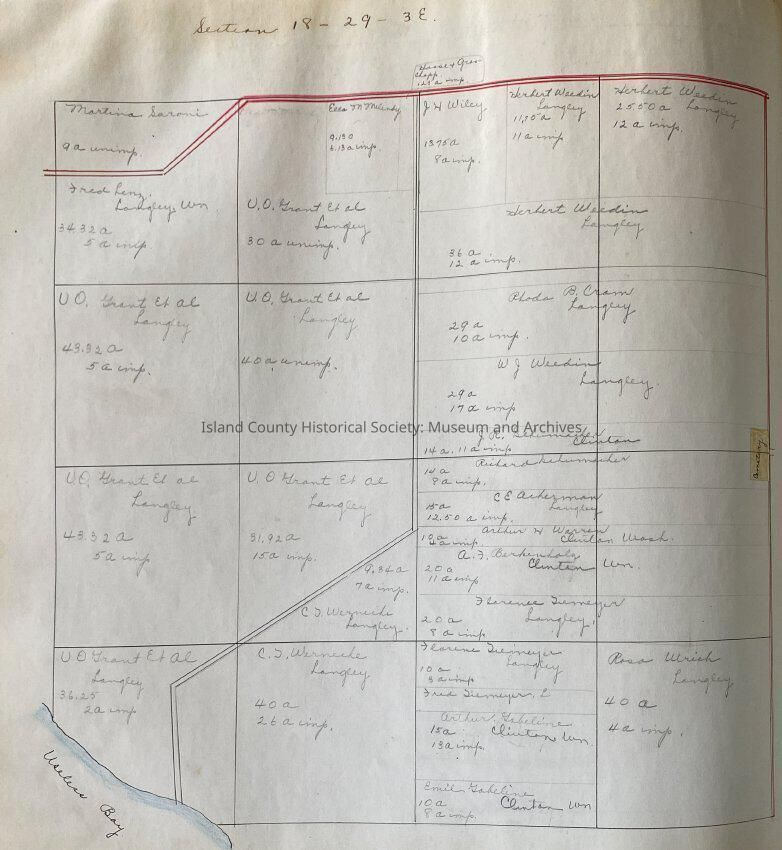 Section 18 - 29 - 3E.
12 a imp.
Martina Saroni
9 a unimp.
Ella M
9.13 a
6.13 a imp.
J H Wiley
13.75 a
8 a imp.
Herbert Weedin
Langley
11.25 a
11 a imp.
Herbert Weedin
25.50 a Langley
12 a imp.
Fred Lenz.
Langley, Wn
34.32 a
5 a imp.
U.O. Grant Et al
Langley
30 a unimp.
Herbert Weedin
Langley
36 a
12 a imp.
U O. Grant Et al
Langley
43.32 a
5 a imp.
U.O. Grant Et al
Langley
40 a unimp.
Rhoda B. Cram
Langley
29 a
10 a imp.
W J Weedin
Langley.
29 a
17 a imp
Island County Historical Society: Museum and Archives
J.R. Schumacher
Clinton
14 a. 11 a imp
Cemetery
U.O. Grant Et al
Langley.
43.32 a
5 a imp.
U O Grant Et al
Langley
31.92 a
15 a imp.
Richard Schumacher
14 a
8 a imp.
C E Ackerman
Langley
15 a
12.50 a imp.
Arthur H Warren
10 a Clinton Wash.
4 a imp.
A. F. Berkenholz
20 a Clinton Wn.
11 a imp.
9.34 a
7 a imp.
C F Werneche
Langley.
Florence Tiemeyer
20 a Langley,
8 a imp.
U O Grant Et Al
Langley
36.25
2 a imp
C. F. Werneche
Langley
40 a
26 a imp.
Florene Tiemeyer
10 a Langley
8 a imp.
Fred Tiemeyer,
Arthur Gabeline
15 a Clinton Wn.
13 a imp.
Emil Gabeline
10 a Clinton Wn
8 a imp.
Rosa Ulrich
Langley
40 a
4 a imp.
Useless Bay